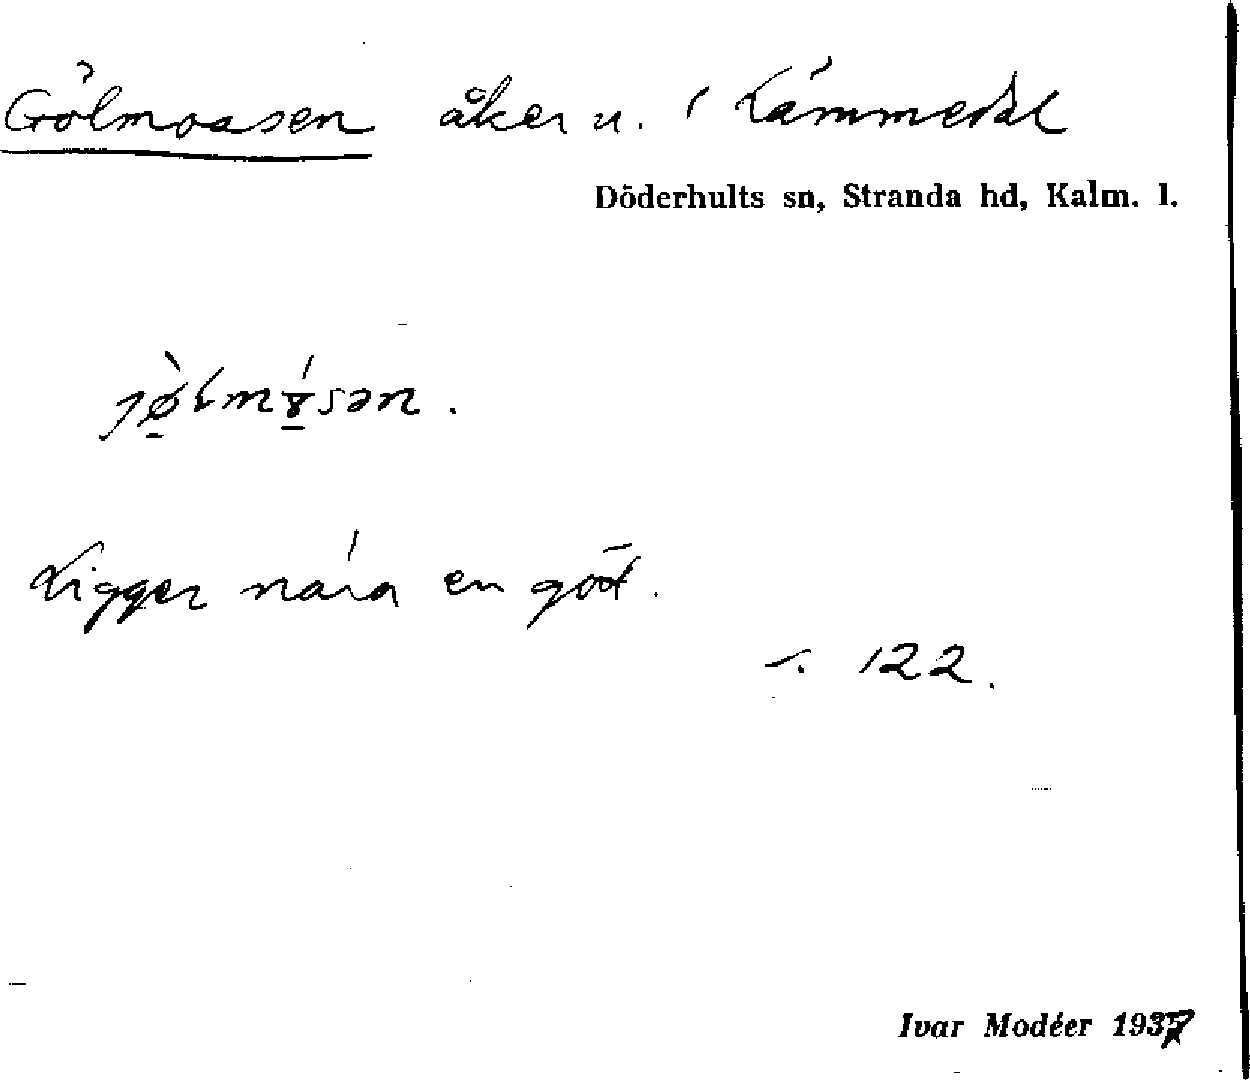 Gölmossen åker u. Lämmedal
Döderhults sn, Stranda hd, Kalm. l.
Ligger nära en göl.
s. 122.
Ivar Modéer 1937